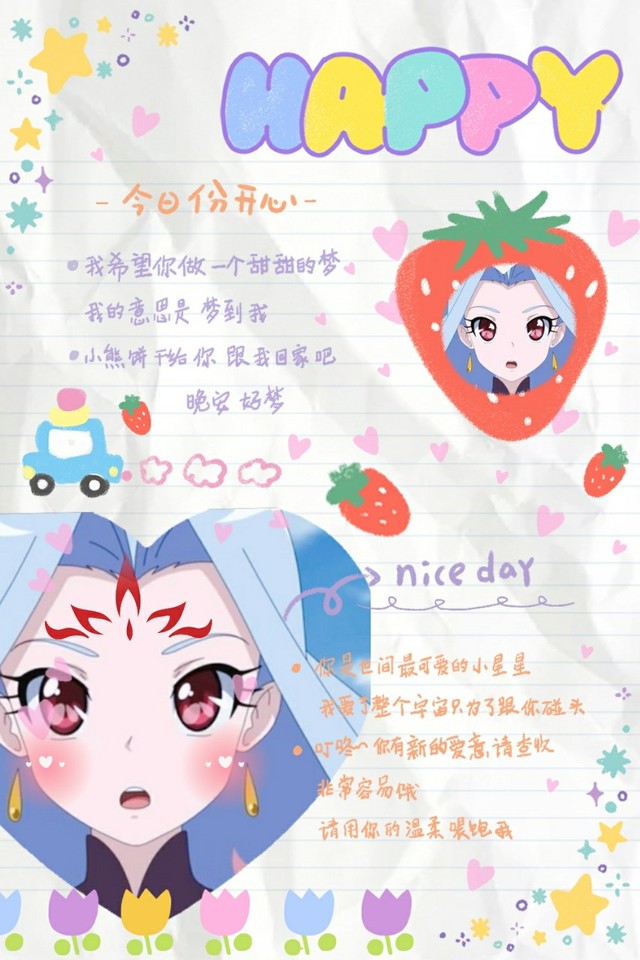 HAPPY
-今日份开心-
我希望你做一个甜甜的梦
我的意思是 梦到我
小熊饼干给你 跟我回家吧
晚安 好梦
nice day
你是世间最可爱的小星星
我要了整个宇宙只为了跟你碰头
叮咚~你有新的爱意,请查收
非常容易饿
请用你的温柔喂饱我